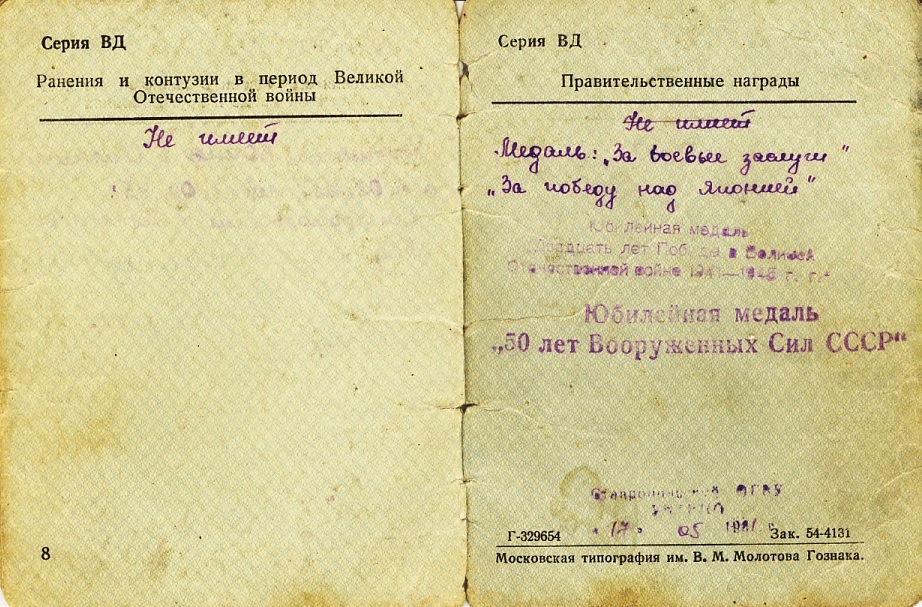 Серия ВД
Ранения и контузии в период Великой
Отечественной войны
Не имеет
8
Серия ВД
Правительственные награды
Не имеет
Медаль: „За боевые заслуги"
„За победу над Японией"
Юбилейная медаль
Двадцать лет Победы в Великой
Отечественной войне 1941—1945 г. г."
Юбилейная медаль
„50 лет Вооруженных Сил СССР"
17 05
Г-329654 Зак. 54-4131
Московская типография им. В. М. Молотова Гознака.